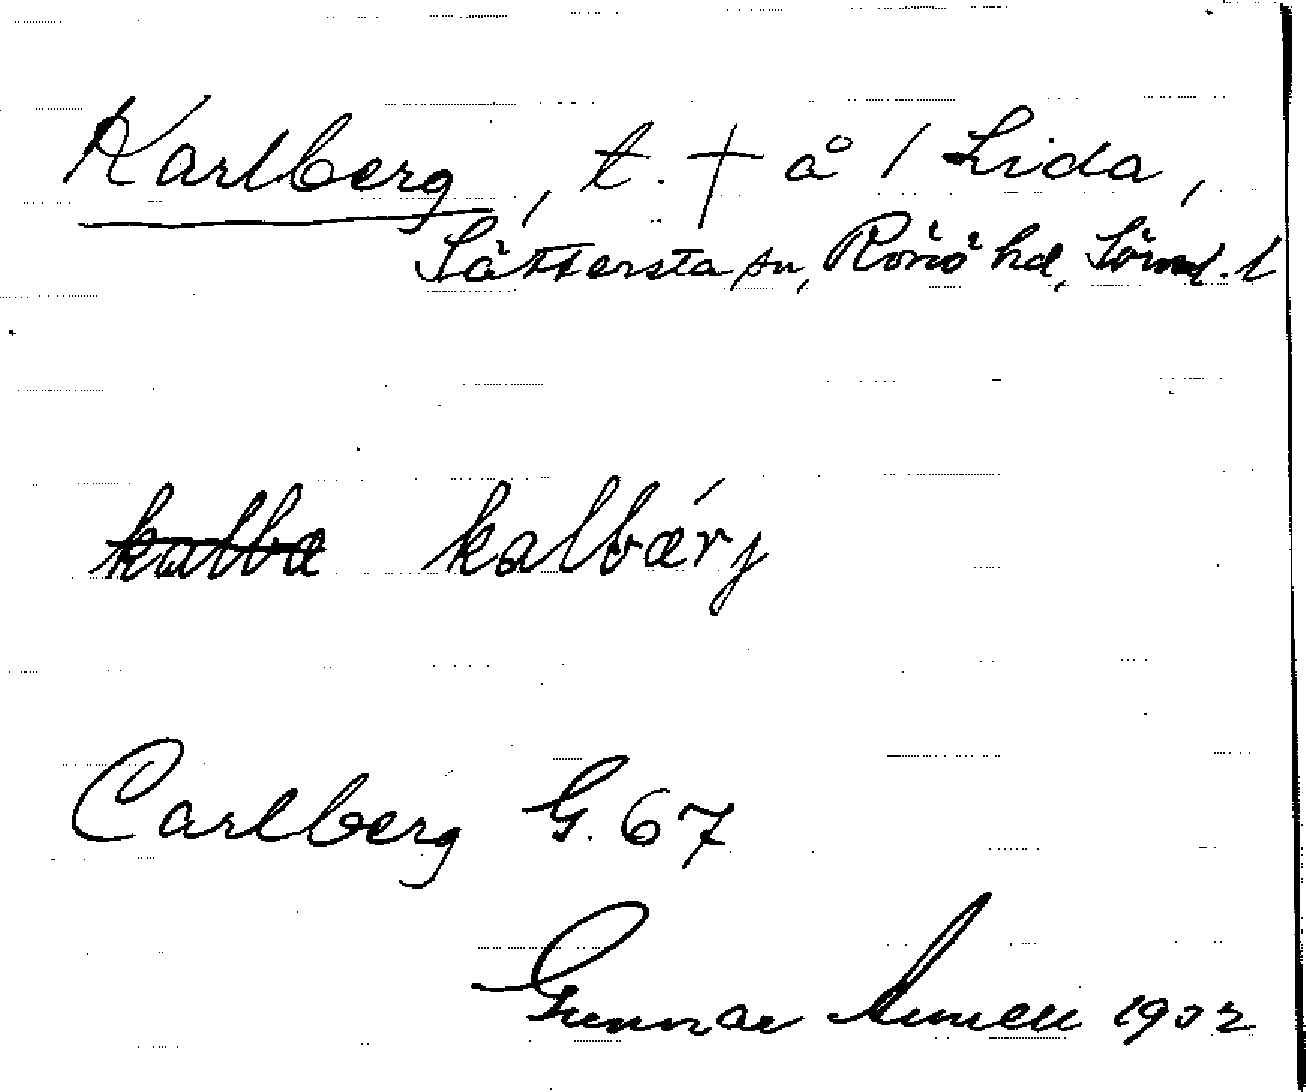 Karlberg, t. † å 1 Lida,
Sättersta sn, Rönö hd, Sörml. l
kalbæ kalbærj
Carlberg G. 67
Gunnar 1932